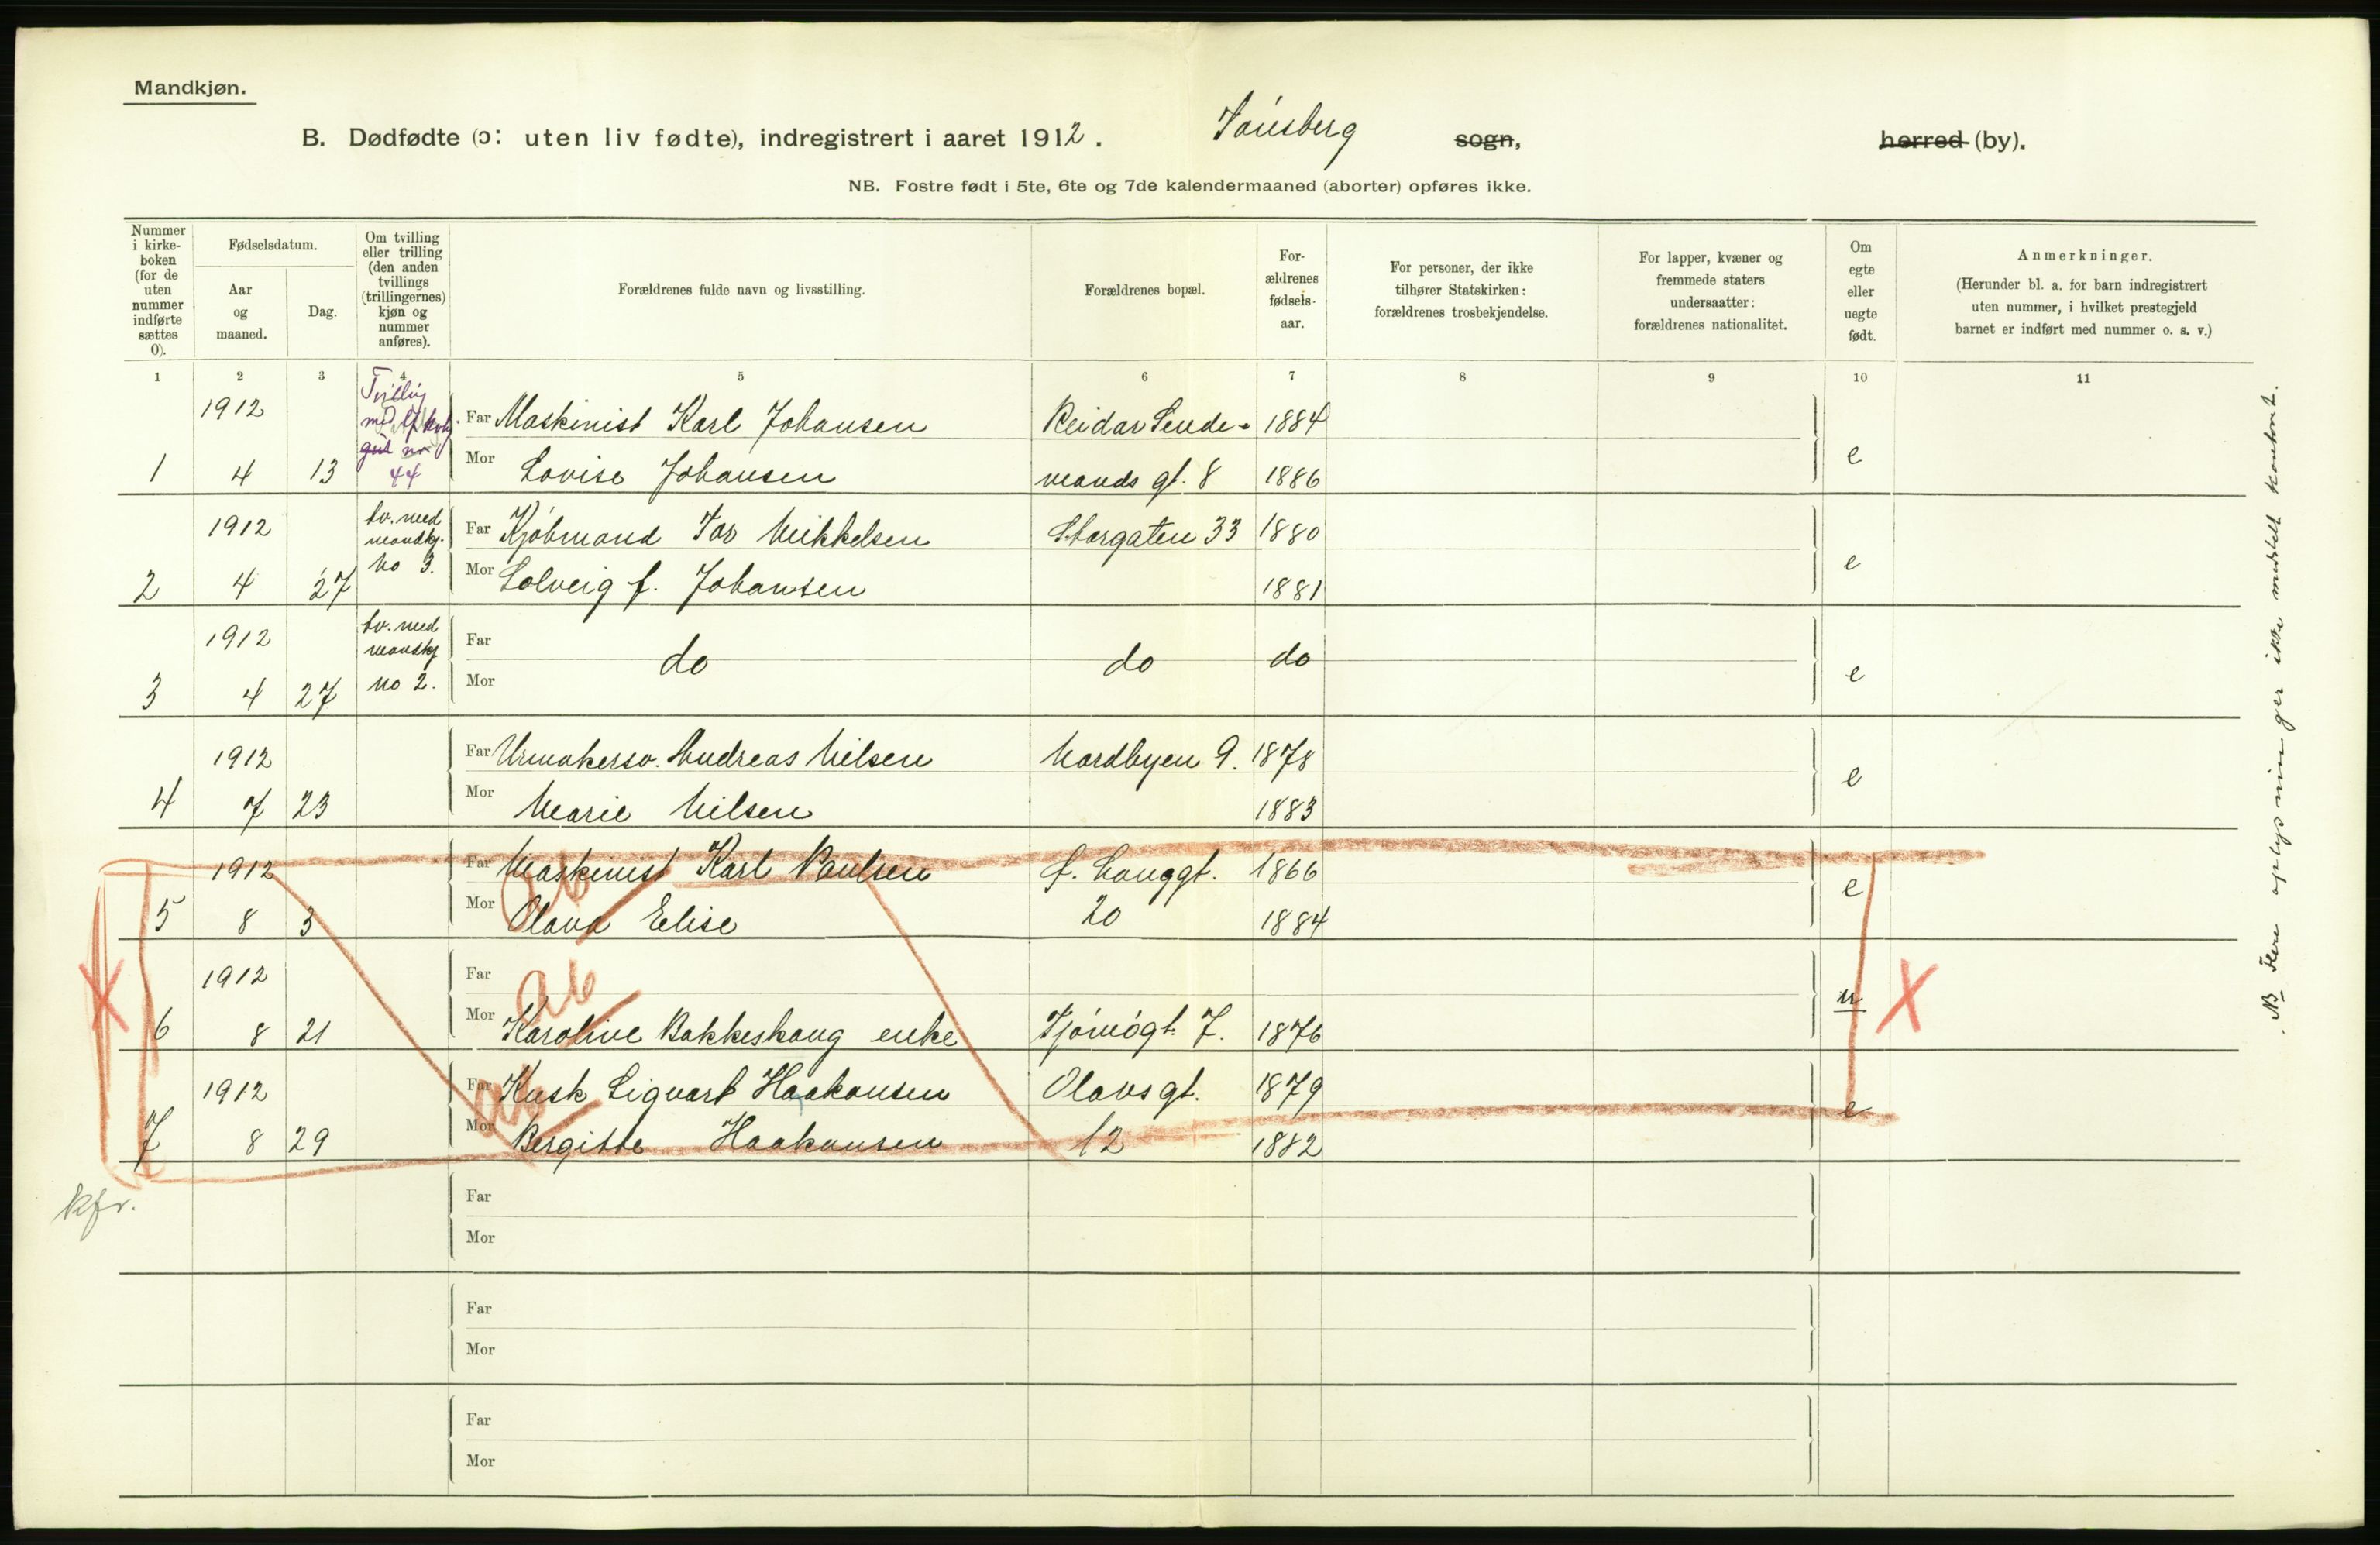 Mandkjøn.
B. Dødfødte (ɔ: uten liv fødte), indregistrert i aaret 1912. Tønsberg sogn, herred (by).
NB. Fostre født i 5te, 6te og 7de kalendermaaned (aborter) opføres ikke.
Nummer i kirkeboken (for de uten nummer indførte sættes 0).
Fødselsdatum.
Aar og maaned.
Dag.
Om tvilling eller trilling (den anden tvillings (trillingernes) kjøn og nummer anføres).
Forældrenes fulde navn og livsstilling.
Forældrenes bopæl.
Forældrenes fødselsaar.
For personer, der ikke tilhører Statskirken: forældrenes trosbekjendelse.
For lapper, kvæner og fremmede staters undersaatter: forældrenes nationalitet.
Om egte eller uegte født.
Anmerkninger.
(Herunder bl. a. for barn indregistrert uten nummer, i hvilket prestegjeld barnet er indført med nummer o. s. v.)
1 2 3 4 5 6 7 8 9 10 11
1912 Tvilling med Far Maskinist Karl Johansen Reidar Sende- 1884
1 4 13 no 44 Mor Lovise Johansen mands gt. 8 1886 e
1912 tv. med mandkj. Far Kjøbmand Tor Mikkelsen Storgaten 33 1880
2 4 27 No 3. Mor Solveig f. Johansen 1881 e
1912 tv. med mandkj Far do do do
3 4 27 No 2. Mor e
1912 Far Urmakersv. Andreas Nilsen Nordbyen 9. 1878
4 7 23 Mor Marie Nilsen 1883 e
1912 Far Maskinist Karl Paulsen f. Langgt. 1866
5 8 3 Mor Olava Elise 20 1884 e
Ab
1912 Far
6 8 21 Mor Karoline Bakkeskaug enke Tjømøgt. 7. 1876 u X
X
Ab
1912 Far Kusk Sigvart Haakonsen Olavsgt. 1879
7 8 29 Mor Bergitte Haakonsen 12 1882 e
Ab
kfr.
Far
Mor
Far
Mor
Far
Mor
NB Flere oplysninger ikke meddelt kontoret.